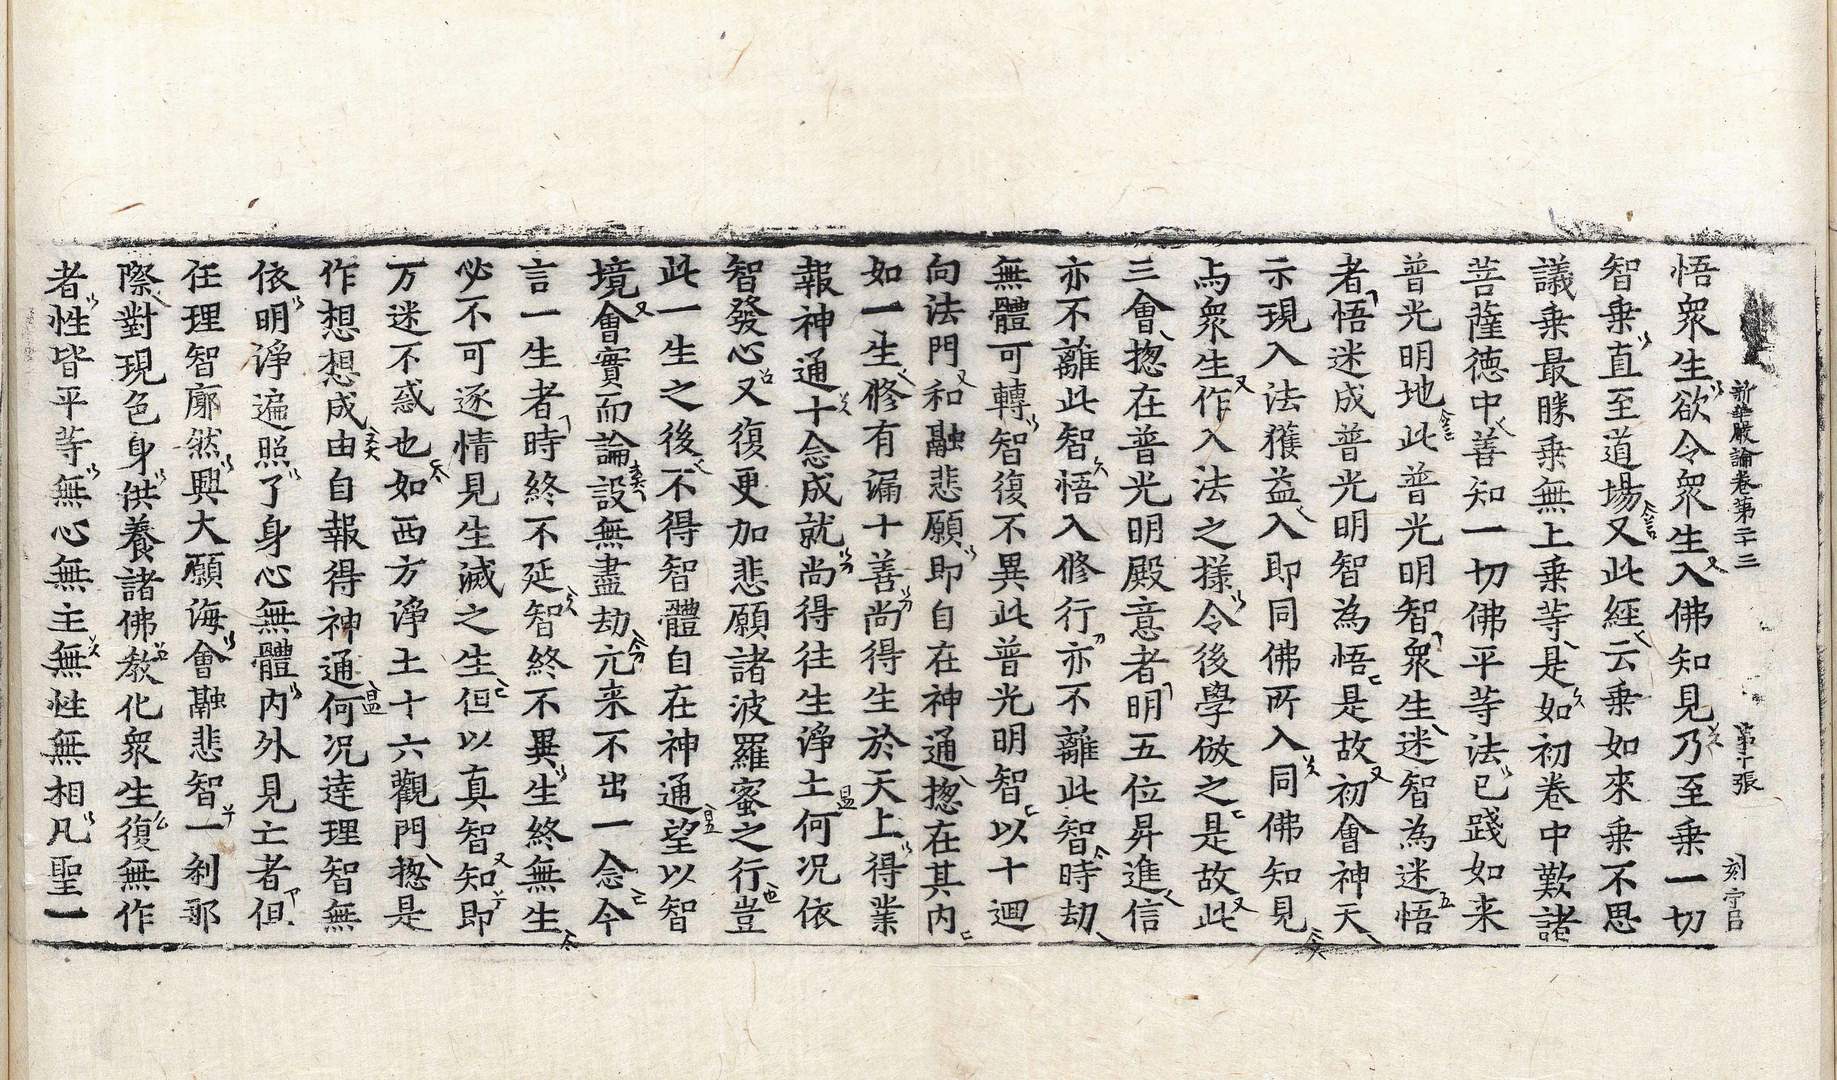 新華嚴論卷第二十三 第十張 刻字昌
悟衆生欲令衆生入佛知見乃至乗一切
智乗直至道場又此經云乗如來乗不思
議乗最勝乗無上乗等是如初卷中歎諸
菩薩德中善知一切佛平等法已踐如来
普光明地此普光明智衆生迷智為迷悟
者悟迷成普光明智為悟是故初會神天
示現入法獲益入即同佛所入同佛知見
与衆生作入法之㨾令後學倣之是故此
三會揔在普光明殿意者明五位昇進信
亦不離此智悟入修行亦不離此智時劫
無體可轉智復不異此普光明智以十迴
向法門和融悲願即自在神通揔在其内
如一生修有漏十善尚得生於天上得業
報神通十念成就尚得往生淨土何况依
智發心又復更加悲願諸波羅蜜之行豈
此一生之後不得智體自在神通望以智
境會實而論設無盡劫元来不出一念今
言一生者時終不延智終不異生終無生
必不可逐情見生滅之生但以真智知即
万迷不惑也如西方淨土十六觀門揔是
作想想成由自報得神通何况達理智無
依明淨遍照了身心無體内外見亡者但
任理智廓然興大願海會融悲智一刹那
際對現色身供養諸佛教化衆生復無作
者性皆平等無心無主無性無相凡聖一